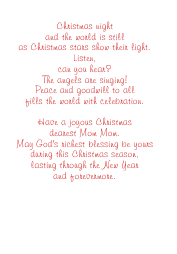 Christmas night
and the world is still
as Christmas stars show their light.
Listen,
can you hear?
The angels are singing!
Peace and goodwill to all
fills the world with celebration.

Have a joyous Christmas
dearest Mon Mon.
May God's richest blessing be yours
during this Christmas season,
lasting through the New Year
and forevermore.